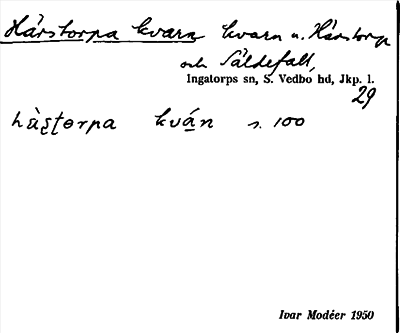 Hårstorpa kvarn kvarn u. Hårstorp
och Säldefall,
Ingatorps sn, S. Vedbo hd, Jkp. l.
29
hàʂʈɵrpa kván s. 100
Ivar Modéer 1950